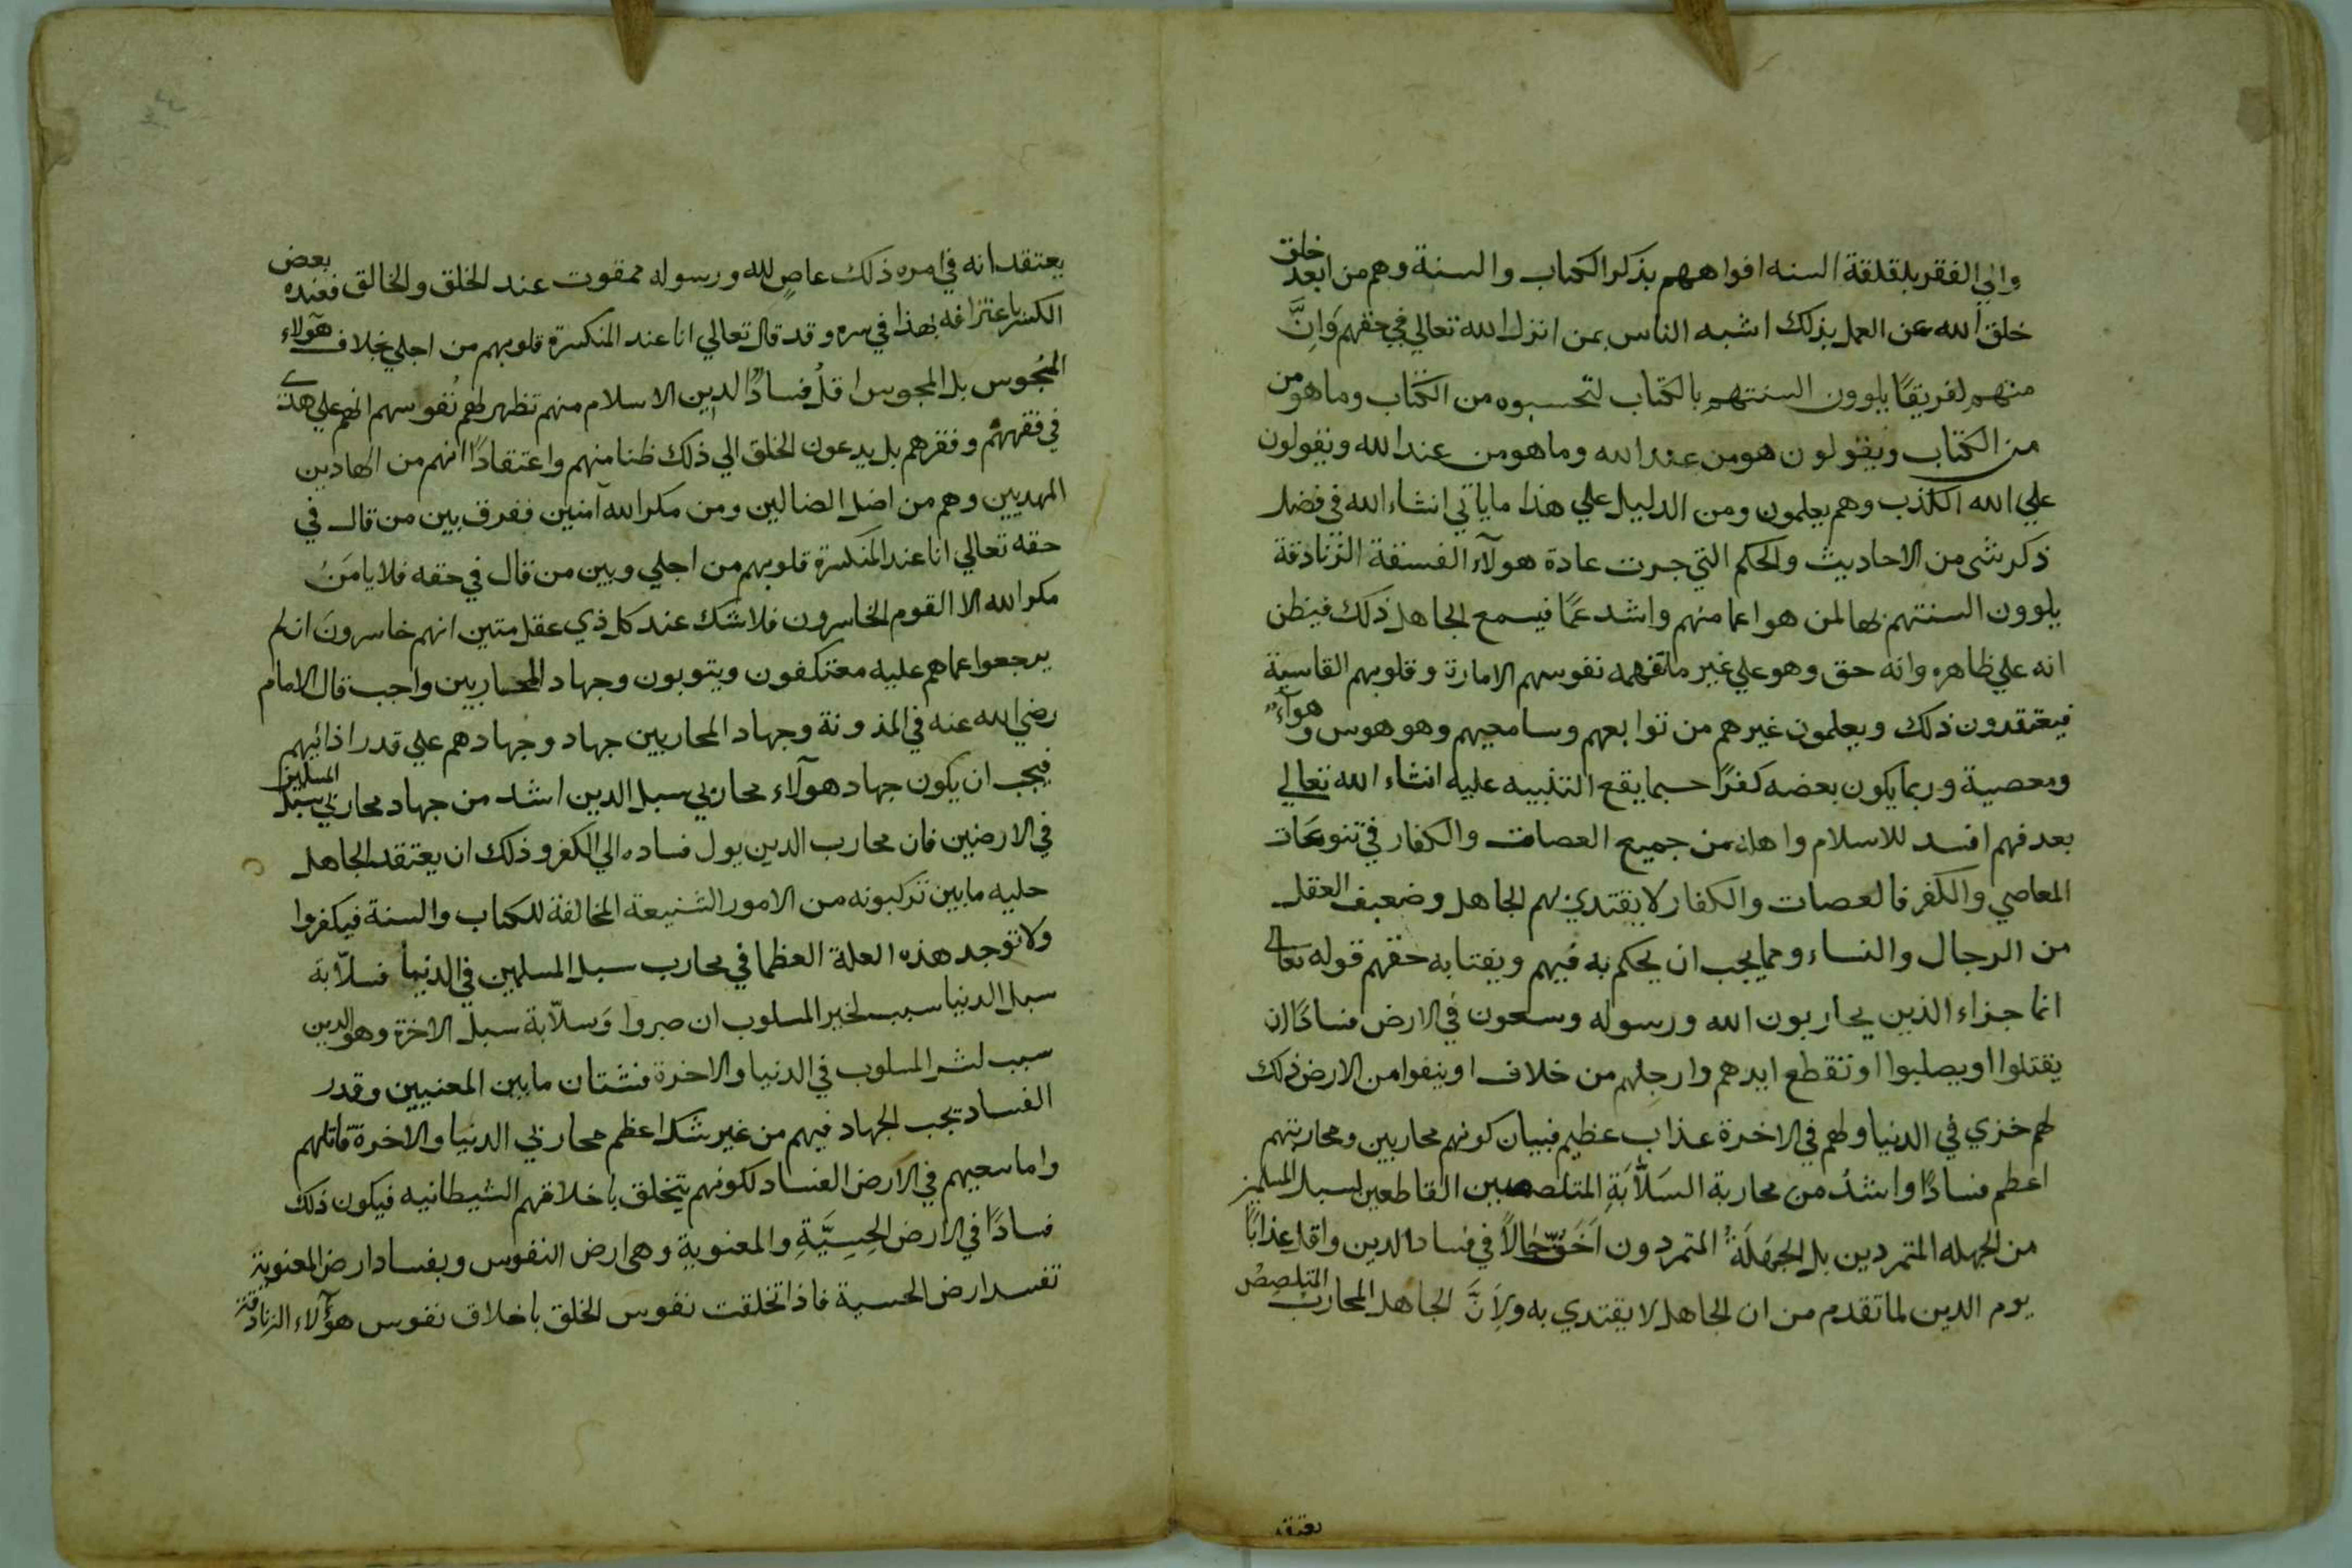 والي الفقر بلقلقة السنه افواههم بذكر الكتاب والسنة وهم من ابعد خلق
خلق الله عن العمل بذلك اشبه الناس بمن انزل الله تعالي في حقهم وَاِنَّ
منهم لفريقًا يلوون السنتهم بالكتاب لتحسبوه من الكتاب وما هو من
من الكتاب ويقولون هو من عند الله وما هو من عند الله ويقولون
علي الله الكذب وهم يعلمون ومن الدليل علي هذا ما ياتي انشاء الله في فضل
ذكر شي من الاحاديث والحكم التي جرت عادة هولآء الفسقة الزنادقة
يلوون السنتهم بها لمن هو اعما منهم واشد عمًا فيسمع الجاهل ذلك فيظن
انه علي ظاهره وانه حق وهو علي غير ما تفهمه نفوسهم الامارة وقلوبهم القاسية
فيعتقدون ذلك ويعلمون غيرهم من توابعهم وسامعيهم وهو هوس وهوآءٌ
ومعصية وربما يكون بعضه كفرًا حسبما يقع التنبيه عليه انشاء الله تعالي
بعد فهم افسد للاسلام واهله من جميع العصات والكفار في تنوعات
المعاصي والكفر فالعصات والكفار لا يقتدي بهم الجاهل وضعيف العقل
من الرجال والنساء ومما يجب ان يحكم به فيهم ويفتا به حقهم قوله تعالي
انما جزاء الذين يحاربون الله ورسوله وسعون في الارض فسادًا ان
يقتلوا او يصلبوا او تقطع ايدهم وارجلهم من خلاف او ينفوا من الارض ذلك
لهم خزي في الدنيا ولهم في الاخرة عذاب عظيم فبيان كونهم محاربين ومحاربتهم
اعظم فسادًا واشدُ من محاربة السَلَّابَةِ المتلصصين القاطعين لسبل المسلمين
من الجهله المتمردين بل الجَهَلَةُ المتمردون اَخَفُّ حالاً في فساد الدين واقل عذابًا
يوم الدين لما تقدم من ان الجاهل لا يقتدي به ولِاَنَّ الجاهل المحارب المتلصص
يعتقد
يعتقد انه في امره ذلك عاصٍ لله ورسوله ممقوت عند الخلق والخالق فعنده بعض
الكسر باعترافه بهذا في سره وقد قال تعالي انا عند المنكسرة قلوبهم من اجلي بخلاف هآولاء
المجُوس بل المجوس اقلُ فسادًا لدين الاسلام منهم تظهر لهم نُفوسهم انهم علي هدي
في فقههم وفقرهم بل يدعون الخلق الي ذلك ظنا منهم واعتقادًا انهم من الهادين
المهديين وهم من اضل الضالين ومن مكر الله آمنين ففرق بين من قال في
حقه تعالي انا عند المنكسرة قلوبهم من اجلي وبين من قال في حقه فلا يامَنُ
مكر الله الا القوم الخاسرون فلا شك عند كل ذي عقل متين انهم خاسرونَ ان لم
يرجعوا عماهم عليه معتكفون ويتوبون وجهاد المحاربين واجب قال الامام
رضي الله عنه في المدونة وجهاد المحاربين جهاد وجهادهم علي قدر اذائيهم
فيجب ان يكون جهاد هولآء محاربي سبل الدين اشد من جهاد محاربي سبل المسلمين
في الارضين فان محارب الدين يول فساده الي الكفر وذلك ان يعتقد الجاهل
حليه ما بين تركبونه من الامور الشنيعة المخالفة للكتاب والسنة فيكفروا
ولا توجد هذه العلة العظما في محارب سبل المسلمين في الدنيا فسلّابة
سبل الدنيا سبب لخير المسلوب ان صبروا وَسلّابة سبل الاخرة وهو الدين
سبب لشر المسلوب في الدنيا والاخرة فشتان ما بين المعنيين وقدر
الفساد يجب الجهاد فيهم من غير شك اعظم محاربي الدنيا والاخرة قاتلهم
واما سعيهم في الارض الفساد لكونهم يتخلق باخلاقهم الشيطانيه فيكون ذلك
فسادًا في الارض الحِسِيَّةِ والمعنوية وهي ارض النفوس وبفساد ارض المعنوية
تفسد ارض الحسية فاذا تخلقت نفوس الخلق باخلاق نفوس هؤلآء الزنادقة